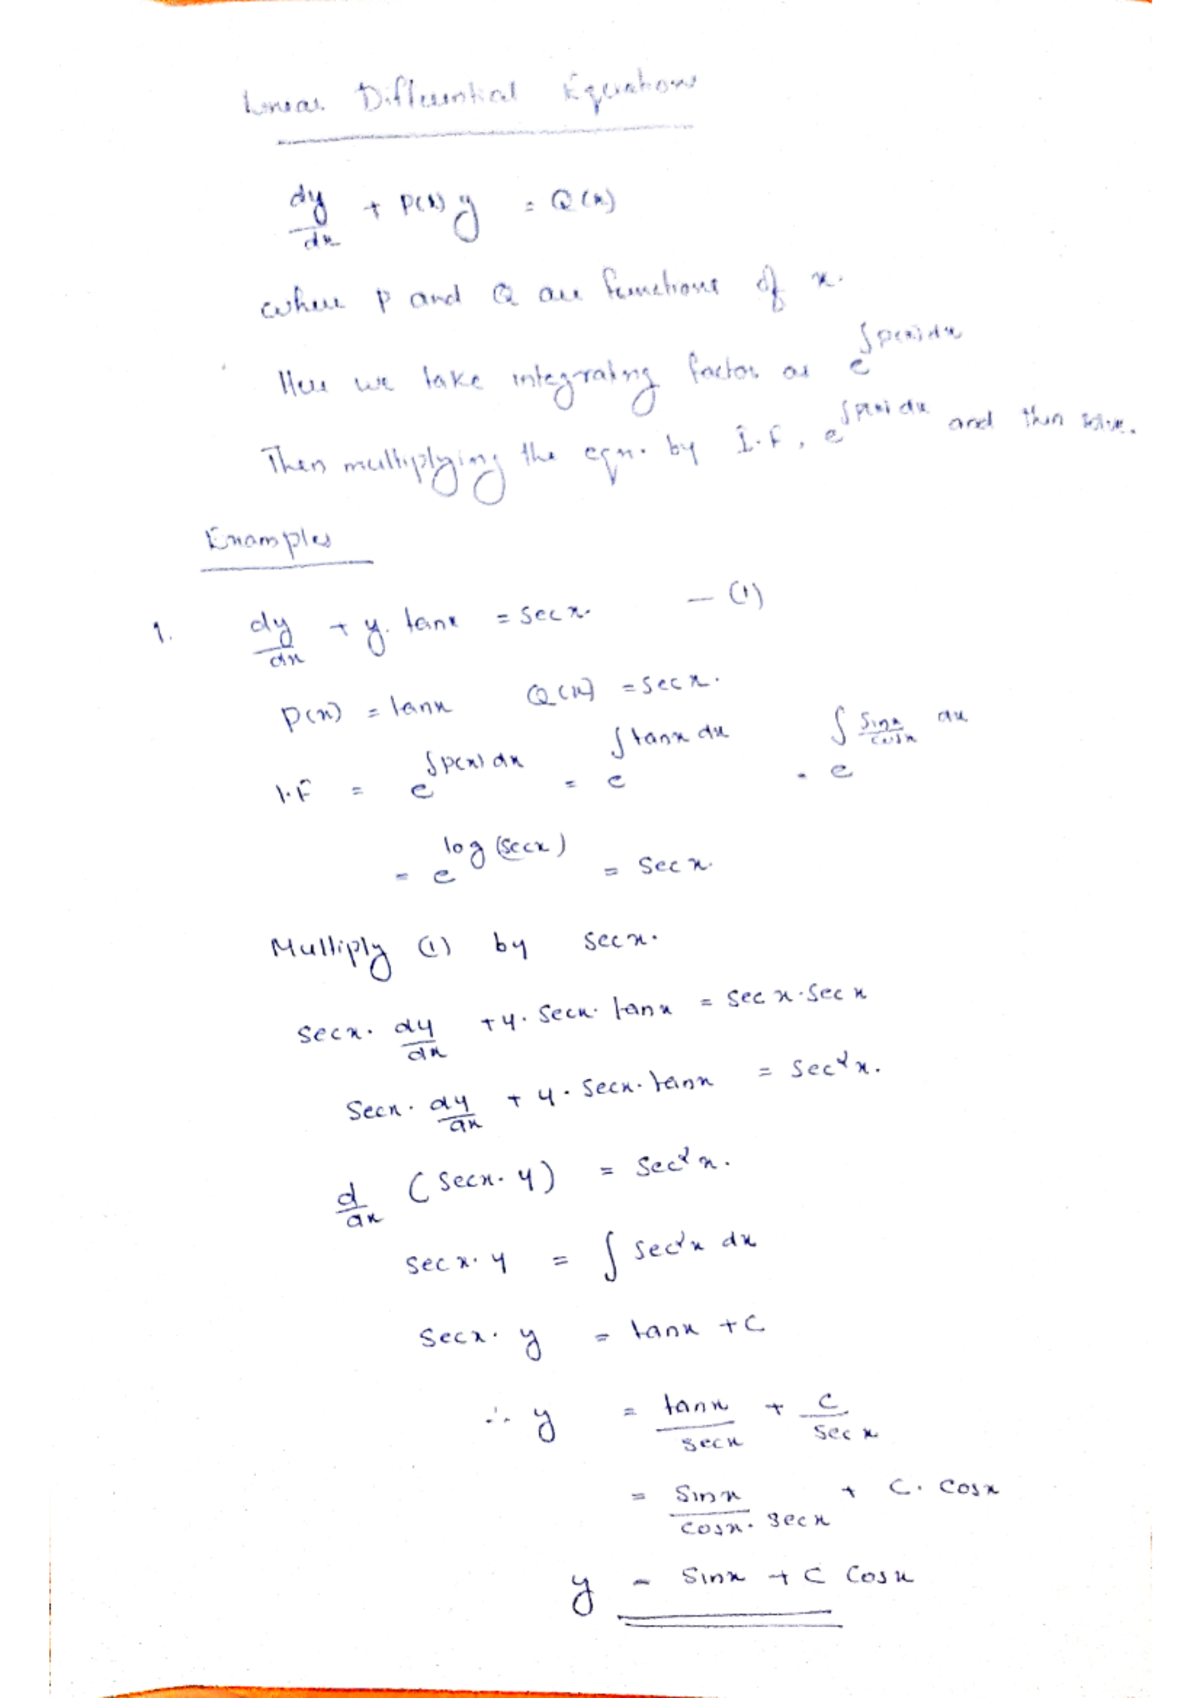 Linear Differential Equations
dy/dx + P(x) y = Q(x)
where P and Q are functions of x.
Here we take integrating factor as e^∫P(x)dx
Then multiplying the eqn. by I.F, e^∫P(x)dx and then solve.
Examples
1. dy/dx + y. tanx = secx. — (1)
P(x) = tanx Q(x) = secx.
I.F = e^∫P(x)dx = e^∫tanx dx = e^∫(sinx/cosx) dx
= e^log(secx) = secx.
Multiply (1) by secx.
secx. dy/dx + y. secx. tanx = secx.secx
secx. dy/dx + y. secx. tanx = sec²x.
d/dx (secx. y) = sec²x.
secx. y = ∫ sec²x dx
secx. y = tanx + C
∴ y = tanx/secx + C/secx
= sinx/cosx. secx + C. cosx
y = sinx + C cosx